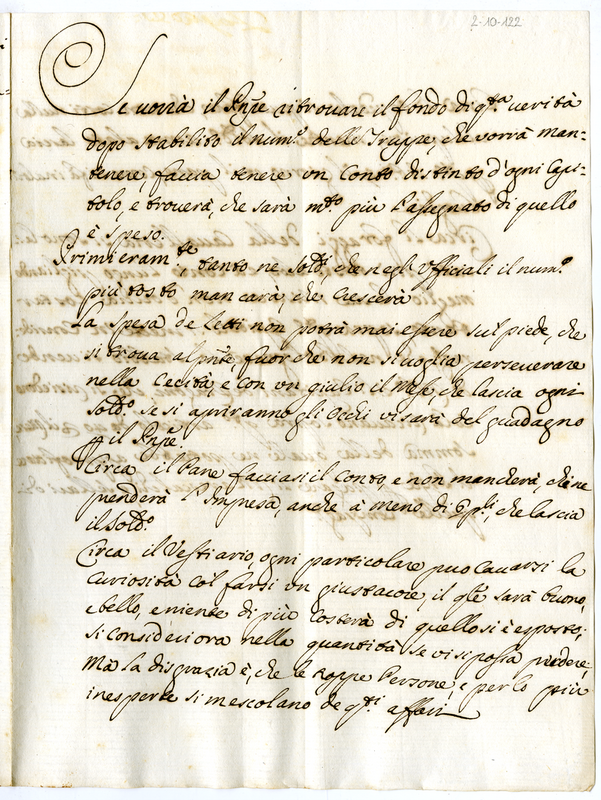 2-10-122
Se vorrà il Pnpe ritrovare il fondo di qta verità
dopo stabilito il numo delle Truppe, che vorrà man-
tenere, faccia tenere un Conto distinto d'ogni Capi-
tolo, e troverà, che sarà mto più l'assegnato di quello
è speso.
Primieramte, tanto ne soldi, che negl'Ufficiali il numo
più tosto mancarà, che crescerà
La spesa de letti non potrà mai essere sul piede, che
si trova al pnte, fuor che non si voglia perseverare
nella Cecità, e con un giulio il mese, che lascia ogni
soldo se si apriranno gli occhi vi sarà del guadagno
il Pnpe
Circa il Pane facciasi il Conto, e non mancherà, chi ne
prenderà l'Impresa, anche à meno di 6 pli, che lascia
il soldo
Circa il Vestiario, ogni particolare può cavarsi la
curiosità col farsi un giustacore, il qle sarà buono,
e bello, e niente di più costerà di quello si è esposto;
si consideri ora nella quantità se vi si possa perdere;
Mà la disgrazia è, che le troppe Persone, e per lo più
inesperte si mescolano de qti affari